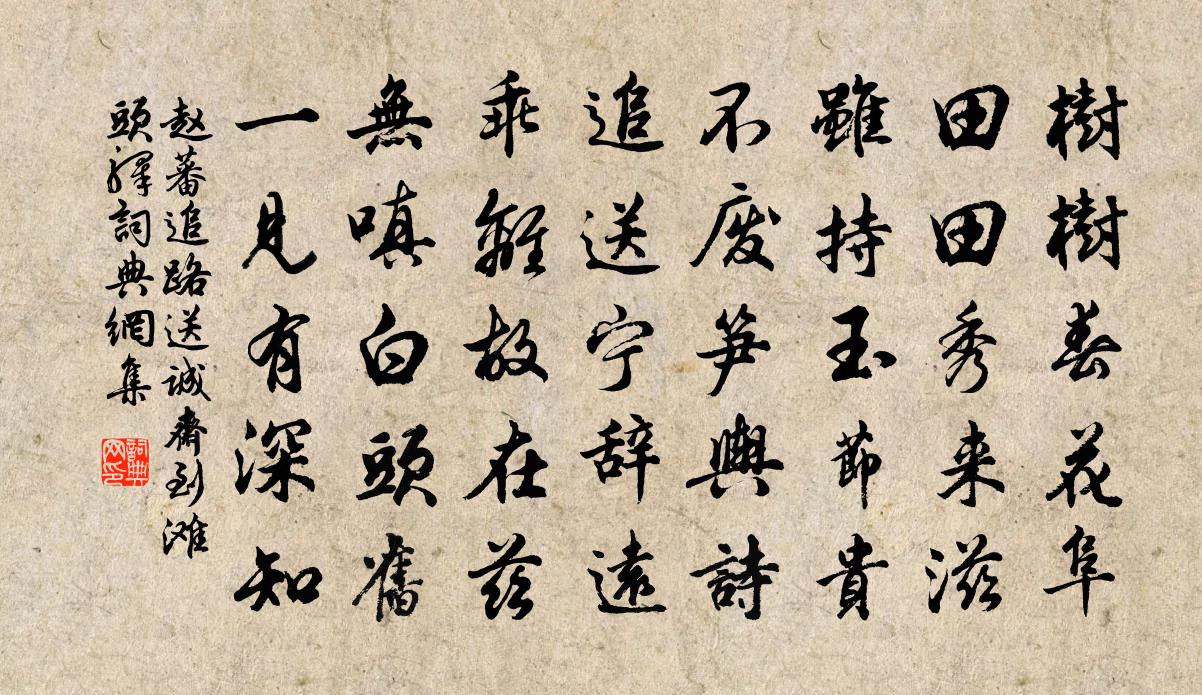 樹樹春花阜
田田秀来滋
雖持玉節貴
不废笋輿詩
追送宁辞遠
乖離故在茲
無嗔白頭舊
一見有深知
赵蕃追路送誠齋到滩
頭釋詞典網集
詞典网印